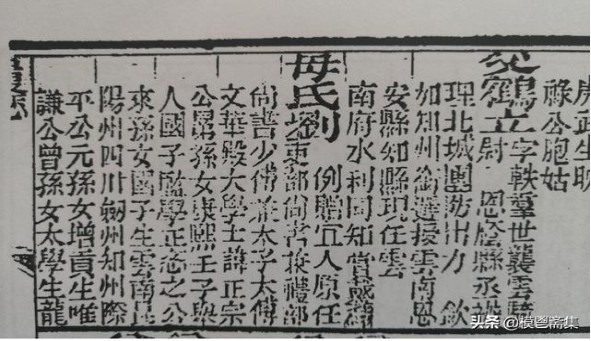 武生
祿公胞姑
父鶴立 字軼羣世襲雲騎
尉 恩廕縣丞辦
理北城團防出力 欽
加知州銜選授雲南恩
安縣知縣現任雲
南府水利同知賞戴藍
母氏劉 例贈宜人原任
吏部尚書 禮部
尚書少傅兼太子太傅
文華殿大學士諱正宗
公晜孫女康熙壬子舉
人國子監學正 之公
來孫女國子生雲南昆
陽州四川劒州知州際
平公元孫女增貢生唯
謙公曾孫女太學生龍
头条 @模鬯斋集